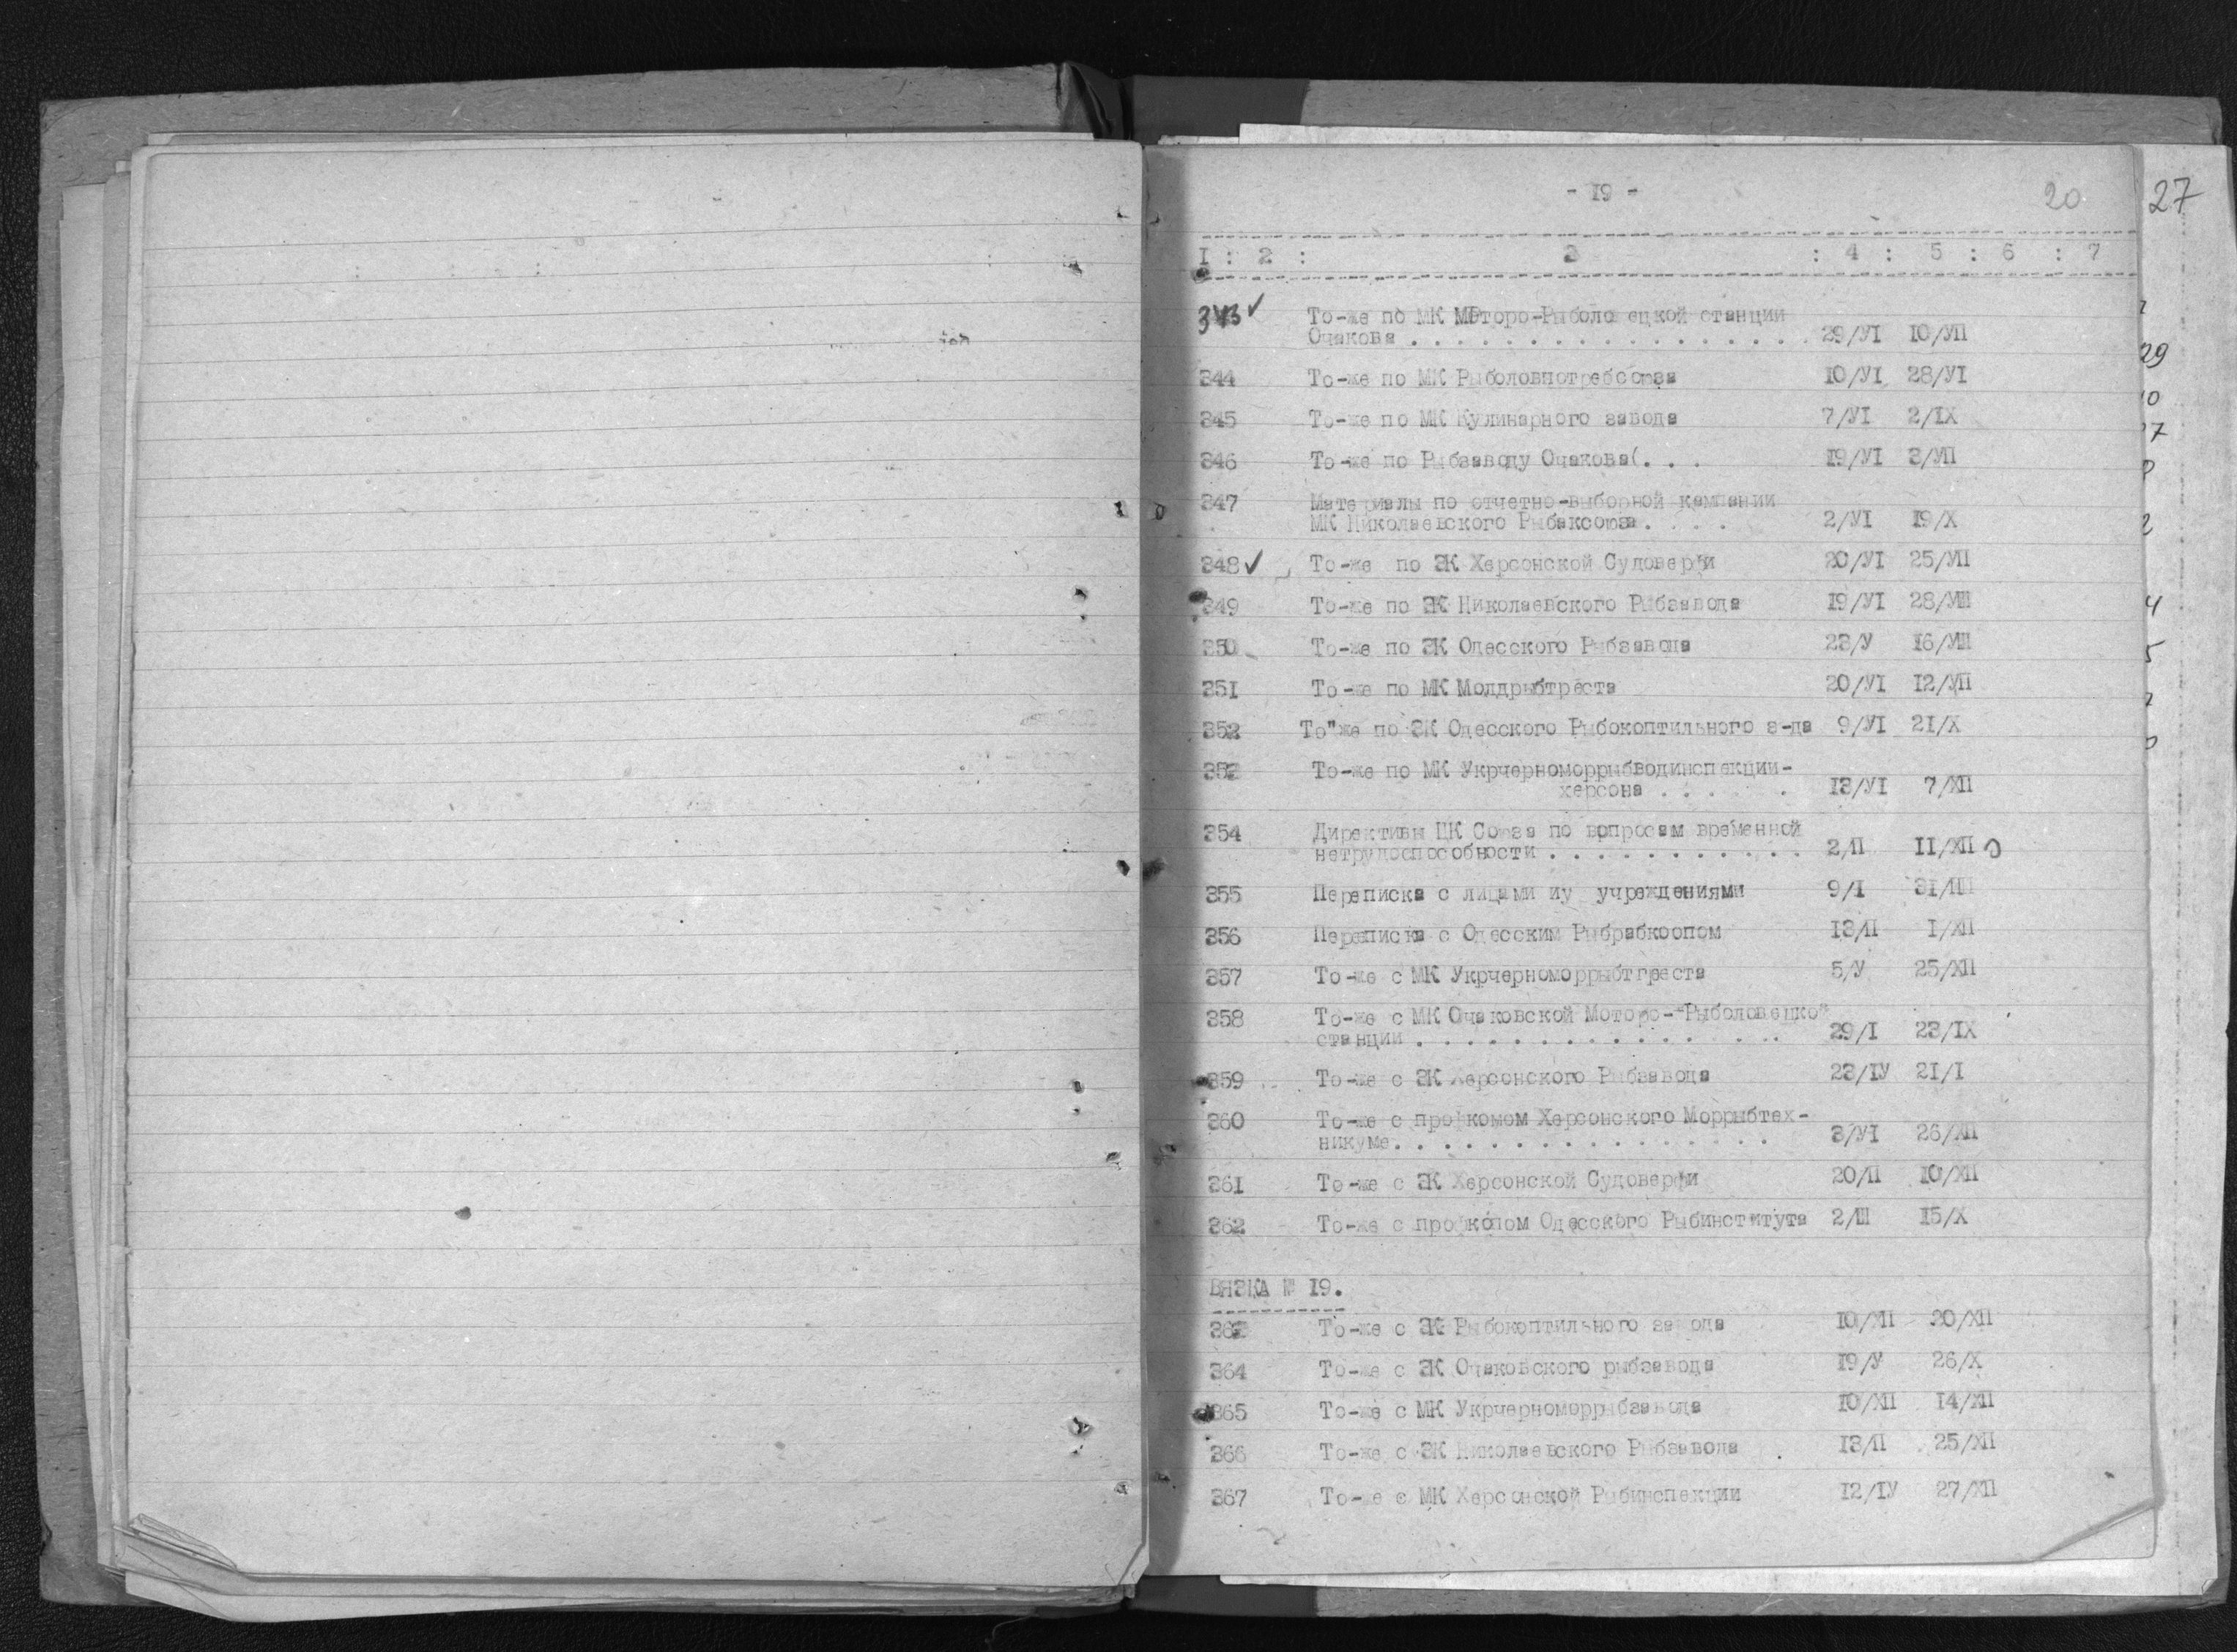 - 19 -
20
27
I : 2 : 3 : 4 : 5 : 6 : 7
343 ✓ То-же по МК Моторо-Рыболовецкой станции
Очакова . . . . . . . . . . . . . . . . . 29/УI 10/УП
344 То-же по МК Рыболовпотребсоюза 10/УI 28/УI
345 То-же по МК Кулинарного завода 7/УI 2/IХ
346 То-же по Рыбзаводу Очакова(. . . 19/УI 3/УП
347 Материалы по отчетно-выборной кампании
МК Николаевского Рыбаксоюза. . . . 2/УI 19/Х
348 ✓ То-же по ЗК Херсонской Судоверфи 20/УI 25/УП
349 То-же по ЗК Николаевского Рыбзавода 19/УI 28/УШ
350 То-же по ЗК Одесского Рыбзавода 23/У 16/УШ
351 То-же по МК Молдрыбтреста 20/УI 12/УП
352 То"же по ЗК Одесского Рыбокоптильного з-да 9/УI 2I/Х
353 То-же по МК Укрчерноморрыбводинспекции-
херсона . . . . . . 13/УI 7/ХП
354 Директивы ЦК Союза по вопросам временной
нетрудоспособности . . . . . . . . . . . 2/П II/ХП
355 Переписка с лицами иу учреждениями 9/I 3I/
356 Переписка с Одесским Рыбрабкоопом 13/П I/ХП
357 То-же с МК Укрчерноморрыбтреста 5/У 25/ХП
358 То-же с МК Очаковской Моторо-Рыболовецкой
станции . . . . . . . . . . . . . . . . 29/I 23/IХ
359 То-же с ЗК Херсонского Рыбзавода 23/IУ 2I/I
360 То-же с профкомом Херсонского Моррыбтех-
никума. . . . . . . . . . . . . . . . . 3/УI 26/ХП
361 То-же с ЗК Херсонской Судоверфи 20/П 10/ХП
362 То-же с профкомом Одесского Рыбинститута 2/Ш 15/Х
ВЯЗКА № 19.
363 То-же с ЗК Рыбокоптильного завода 10/ХП 20/ХП
364 То-же с ЗК Очаковского рыбзавода 19/У 26/Х
365 То-же с МК Укрчерноморрыбзавода 10/ХП 14/ХП
366 То-же с ЗК Николаевского Рыбзавода . 13/П 25/ХП
367 То-же с МК Херсонской Рыбинспекции 12/IУ 27/ХП